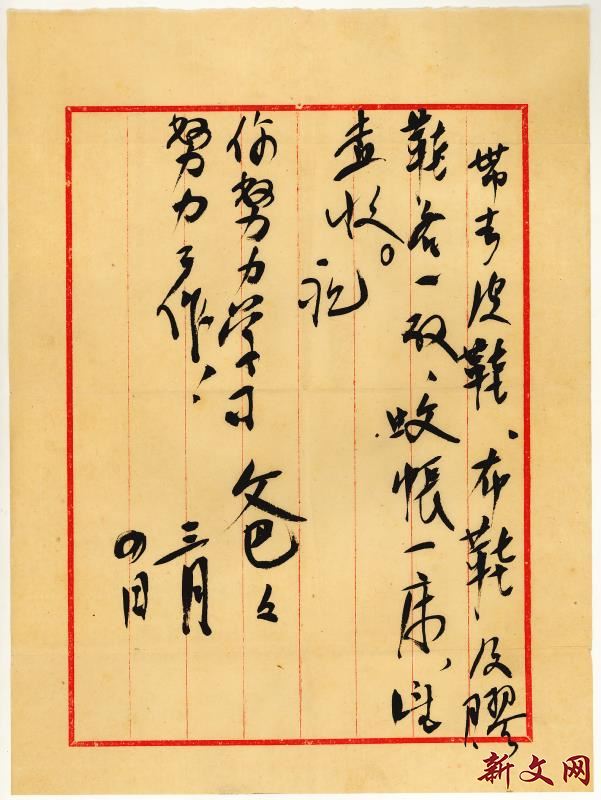 带去皮鞋、布鞋及膠
鞋各一双、蚊帐一床、望
查收。祝
你努力学习
努力工作！
爸々
三月
四日
新文网